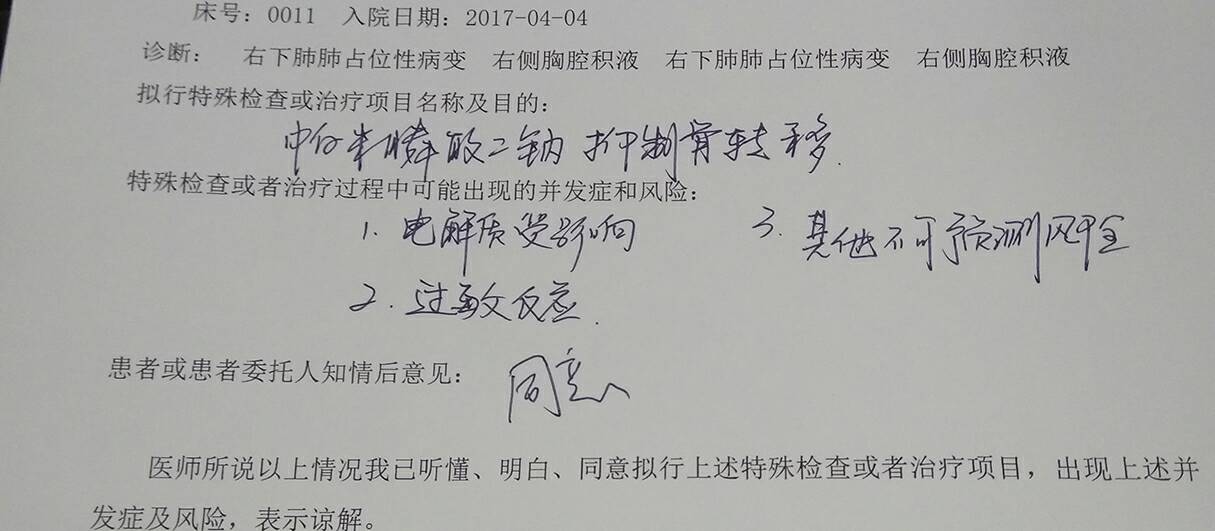 床号：0011 入院日期：2017-04-04
诊断： 右下肺肺占位性病变 右侧胸腔积液 右下肺肺占位性病变 右侧胸腔积液
拟行特殊检查或治疗项目名称及目的：
膦酸二钠 抑制骨转移.
特殊检查或者治疗过程中可能出现的并发症和风险：
1. 电解质受影响 3. 其他不可预测风险
2. 过敏反应.
患者或患者委托人知情后意见： 同意
医师所说以上情况我已听懂、明白、同意拟行上述特殊检查或者治疗项目，出现上述并
发症及风险，表示谅解。